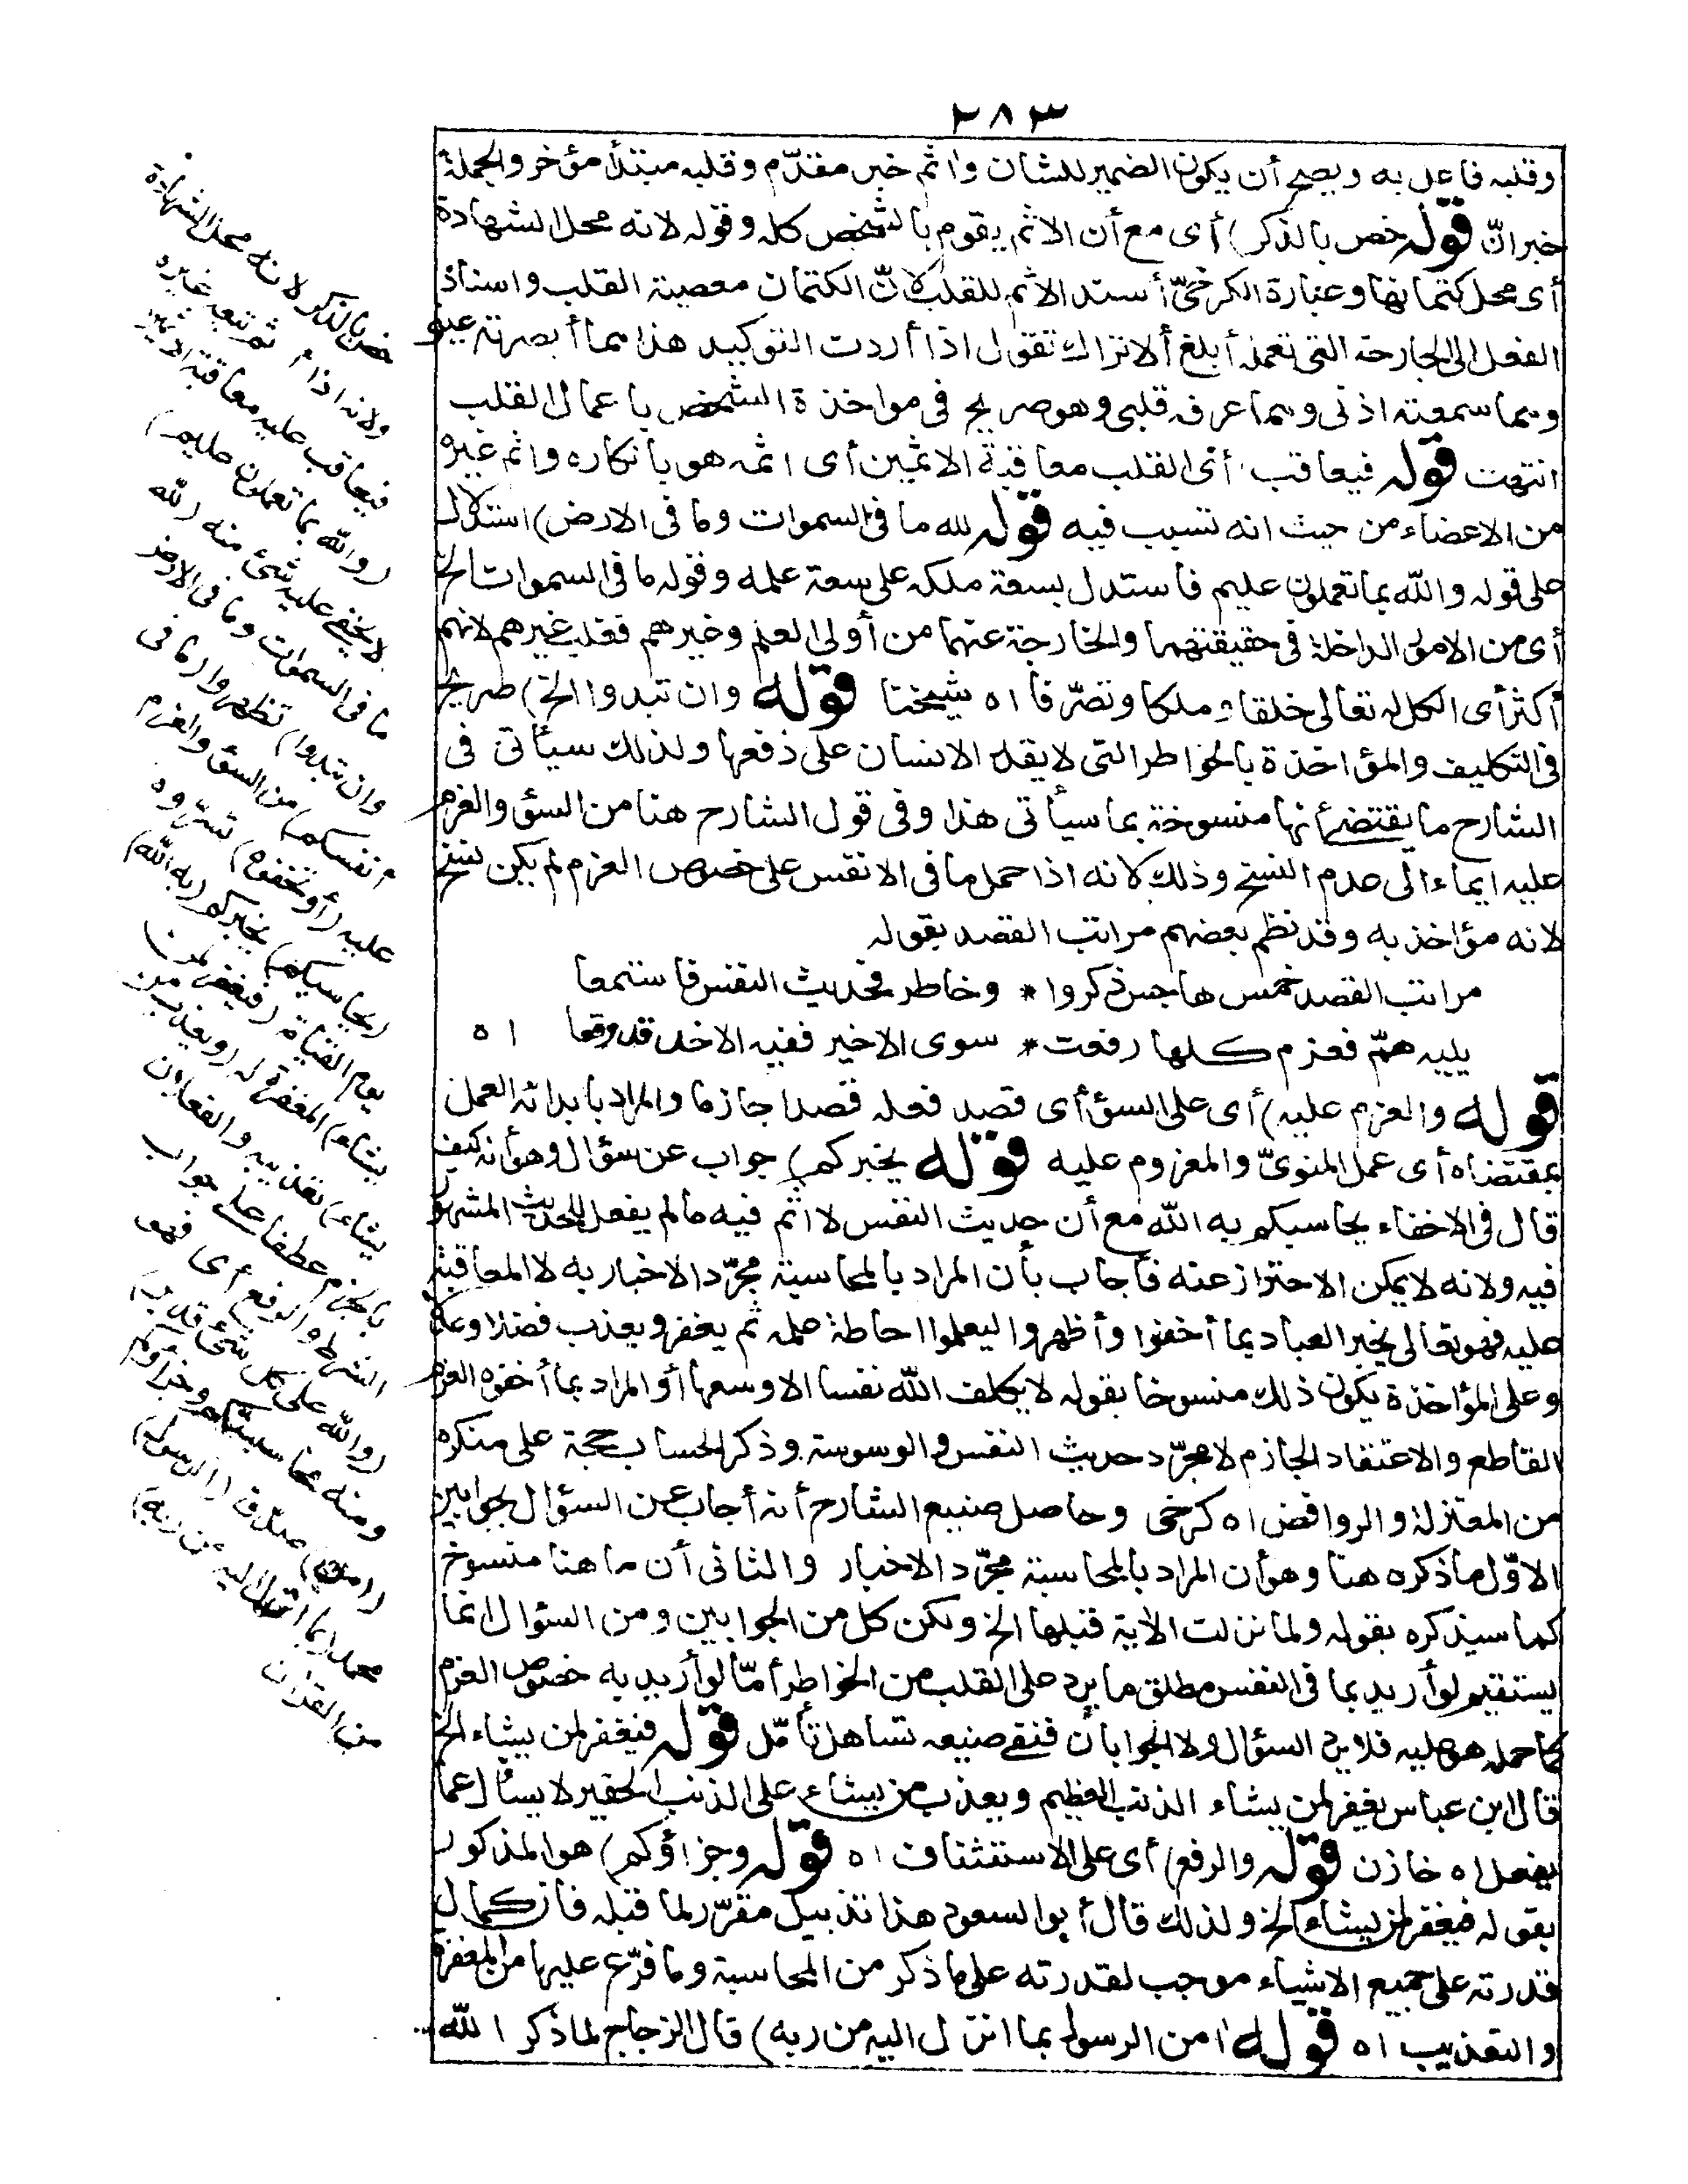 ٢٨٣
وقلبه فاعل به ويصح أن يكون الضمير للشان واثم خبر مقدّم وقلبه مبتدأ مؤخر والجملة
خبر انّ قوله خص بالذكر) أى مع أن الاثم يقوم بالشخص كله وقوله لانه محل الشهادة
أى محل كتمانها وعبارة الكرخىّ أسند الاثم للقلب لانّ الكتمان معصية القلب واسناد
الفعل الى الجارحة التى تعمله أبلغ ألا تراك تقول اذا أردت التوكيد هذا مما أبصرته عينى
ومما سمعته اذنى ومما عرفه قلبى وهو صريح فى مواخذة الشخص باعمال القلب
انتهت قوله فيعاقب أى القلب معاقبة الاثمين أى اثمه هو بانكاره واثم غيره
من الاعضاء من حيث انه تسبب فيه قوله لله ما فى السموات وما فى الارض) استدلال
على قوله والله بما تعملون عليم فاستدل بسعة ملكه على سعة علمه وقوله ما فى السموات الخ
أى من الامور الداخلة فى حقيقتهما والخارجة عنهما من أولى العلم وغيرهم فغلب غيرهم لانهم
أكثر أى الكل له تعالى خلقا وملكا وتصرّفا اه شيخنا قوله وان تبدوا الخ) صريح
فى التكليف والمؤاخذة بالخواطر التى لا يقدر الانسان على دفعها ولذلك سيأتى فى
الشارح ما يقتضى أنها منسوخة بما سيأتى هذا وفى قول الشارح هنا من السؤ والعزم
عليه ايماء الى عدم النسخ وذلك لانه اذا حمل ما فى الانفس على خصوص العزم لم يكن نسخ
لانه مؤاخذ به وقد نظم بعضهم مراتب القصد بقوله
مراتب القصد خمس هاجس ذكروا * وخاطر فحديث النفس فاستمعا
يليه همّ فعزم كلها رفعت * سوى الاخير ففيه الاخذ قد وقعا اه
قوله والعزم عليه) أى على السؤ أى قصد فعله قصدا جازما والمراد بابدائه العمل
بمقتضاه أى عمل المنوىّ والمعزوم عليه قوله يخبركم) جواب عن سؤال وهو أنه كيف
قال فى الاخفاء يحاسبكم به الله مع أن حديث النفس لا اثم فيه ما لم يفعل للحديث المشهور
فيه ولانه لا يمكن الاحتراز عنه فأجاب بأن المراد بالمحاسبة مجرّد الاخبار به لا المعاقبة
عليه فهو تعالى يخبر العباد بما أخفوا وأظهروا ليعلموا احاطة علمه ثم يغفر ويعذب فضلا وعدلا
وعلى المؤاخذة يكون ذلك منسوخا بقوله لا يكلف الله نفسا الا وسعها أو المراد بما أخفوه العزم
القاطع والاعتقاد الجازم لا مجرّد حديث النفس والوسوسة وذكر الحساب حجة على منكره
من المعتزلة والروافض اه كرخى وحاصل صنيع الشارح أنه أجاب عن السؤال بجوابين
الاوّل ما ذكره هنا وهو أن المراد بالمحاسبة مجرّد الاخبار والثانى أن ما هنا منسوخ
كما سيذكره بقوله ولما نزلت الآية قبلها الخ ولكن كل من الجوابين ومن السؤال انما
يستقيم لو أريد بما فى النفس مطلق ما يرد على القلب من الخواطر أمّا لو أريد به خصوص العزم
كما حمله هو عليه فلا يرد السؤال ولا الجوابان ففى صنيعه تساهل تأمّل قوله فيغفر لمن يشاء الخ
قال ابن عباس يغفر لمن يشاء الذنب العظيم ويعذب من يشاء على الذنب الحقير لا يسأل عما
يفعل اه خازن قوله والرفع) أى على الاستئناف اه قوله وجزاؤكم) هو المذكور
بقوله فيغفر لمن يشاء الخ ولذلك قال أبو السعود هذا تذييل مقرّر لما قبله فان كمال
قدرته على جميع الاشياء موجب لقدرته على ما ذكر من المحاسبة وما فرّع عليها من المغفرة
والتعذيب اه قوله امن الرسول بما انزل اليه من ربه) قال الزجاج لما ذكر الله
خص بالذكر لانه محل الشهادة
ولانه اذا أثم تبعه غيره
فيعاقب عليه معاقبة الاثمين
(والله بما تعملون عليم)
لا يخفى عليه شئ منه (لله
ما فى السموات وما فى الارض
وان تبدوا) تظهروا (ما فى
أنفسكم) من السؤ والعزم
عليه (أو تخفوه) تسرّوه
(يحاسبكم) يخبركم (به الله)
يوم القيامة (فيغفر لمن
يشاء) المغفرة له (ويعذب من
يشاء) تعذيبه والفعلان
بالجزم عطفا على جواب
الشرط والرفع أى فهو
(والله على كل شئ قدير)
ومنه محاسبتكم وجزاؤكم
(امن) صدّق (الرسول)
محمد (بما انزل اليه من ربه)
من القرآن